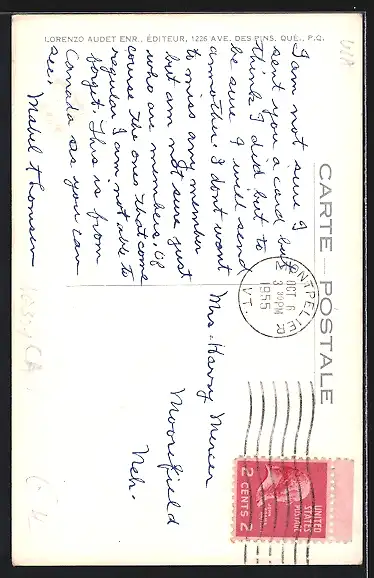 LORENZO AUDET ENR., ÉDITEUR, 1226 AVE. DES PINS, QUÉ., P.Q.
CARTE POSTALE
I am not sure I
sent you a card but
think I did but to
be sure I will send
another. I dont want
to miss any member
but am not sure just
who are members. Of
course the ones that come
regular I am not able to
forget. This is from
Canada as you can
see.
Mabel Thomsen
MONTPELIER
OCT 6
3 PM
1955
VT.
UNITED
STATES
POSTAGE
2 CENTS 2
Mrs Harvy Mercer
Moorefield
Neb.